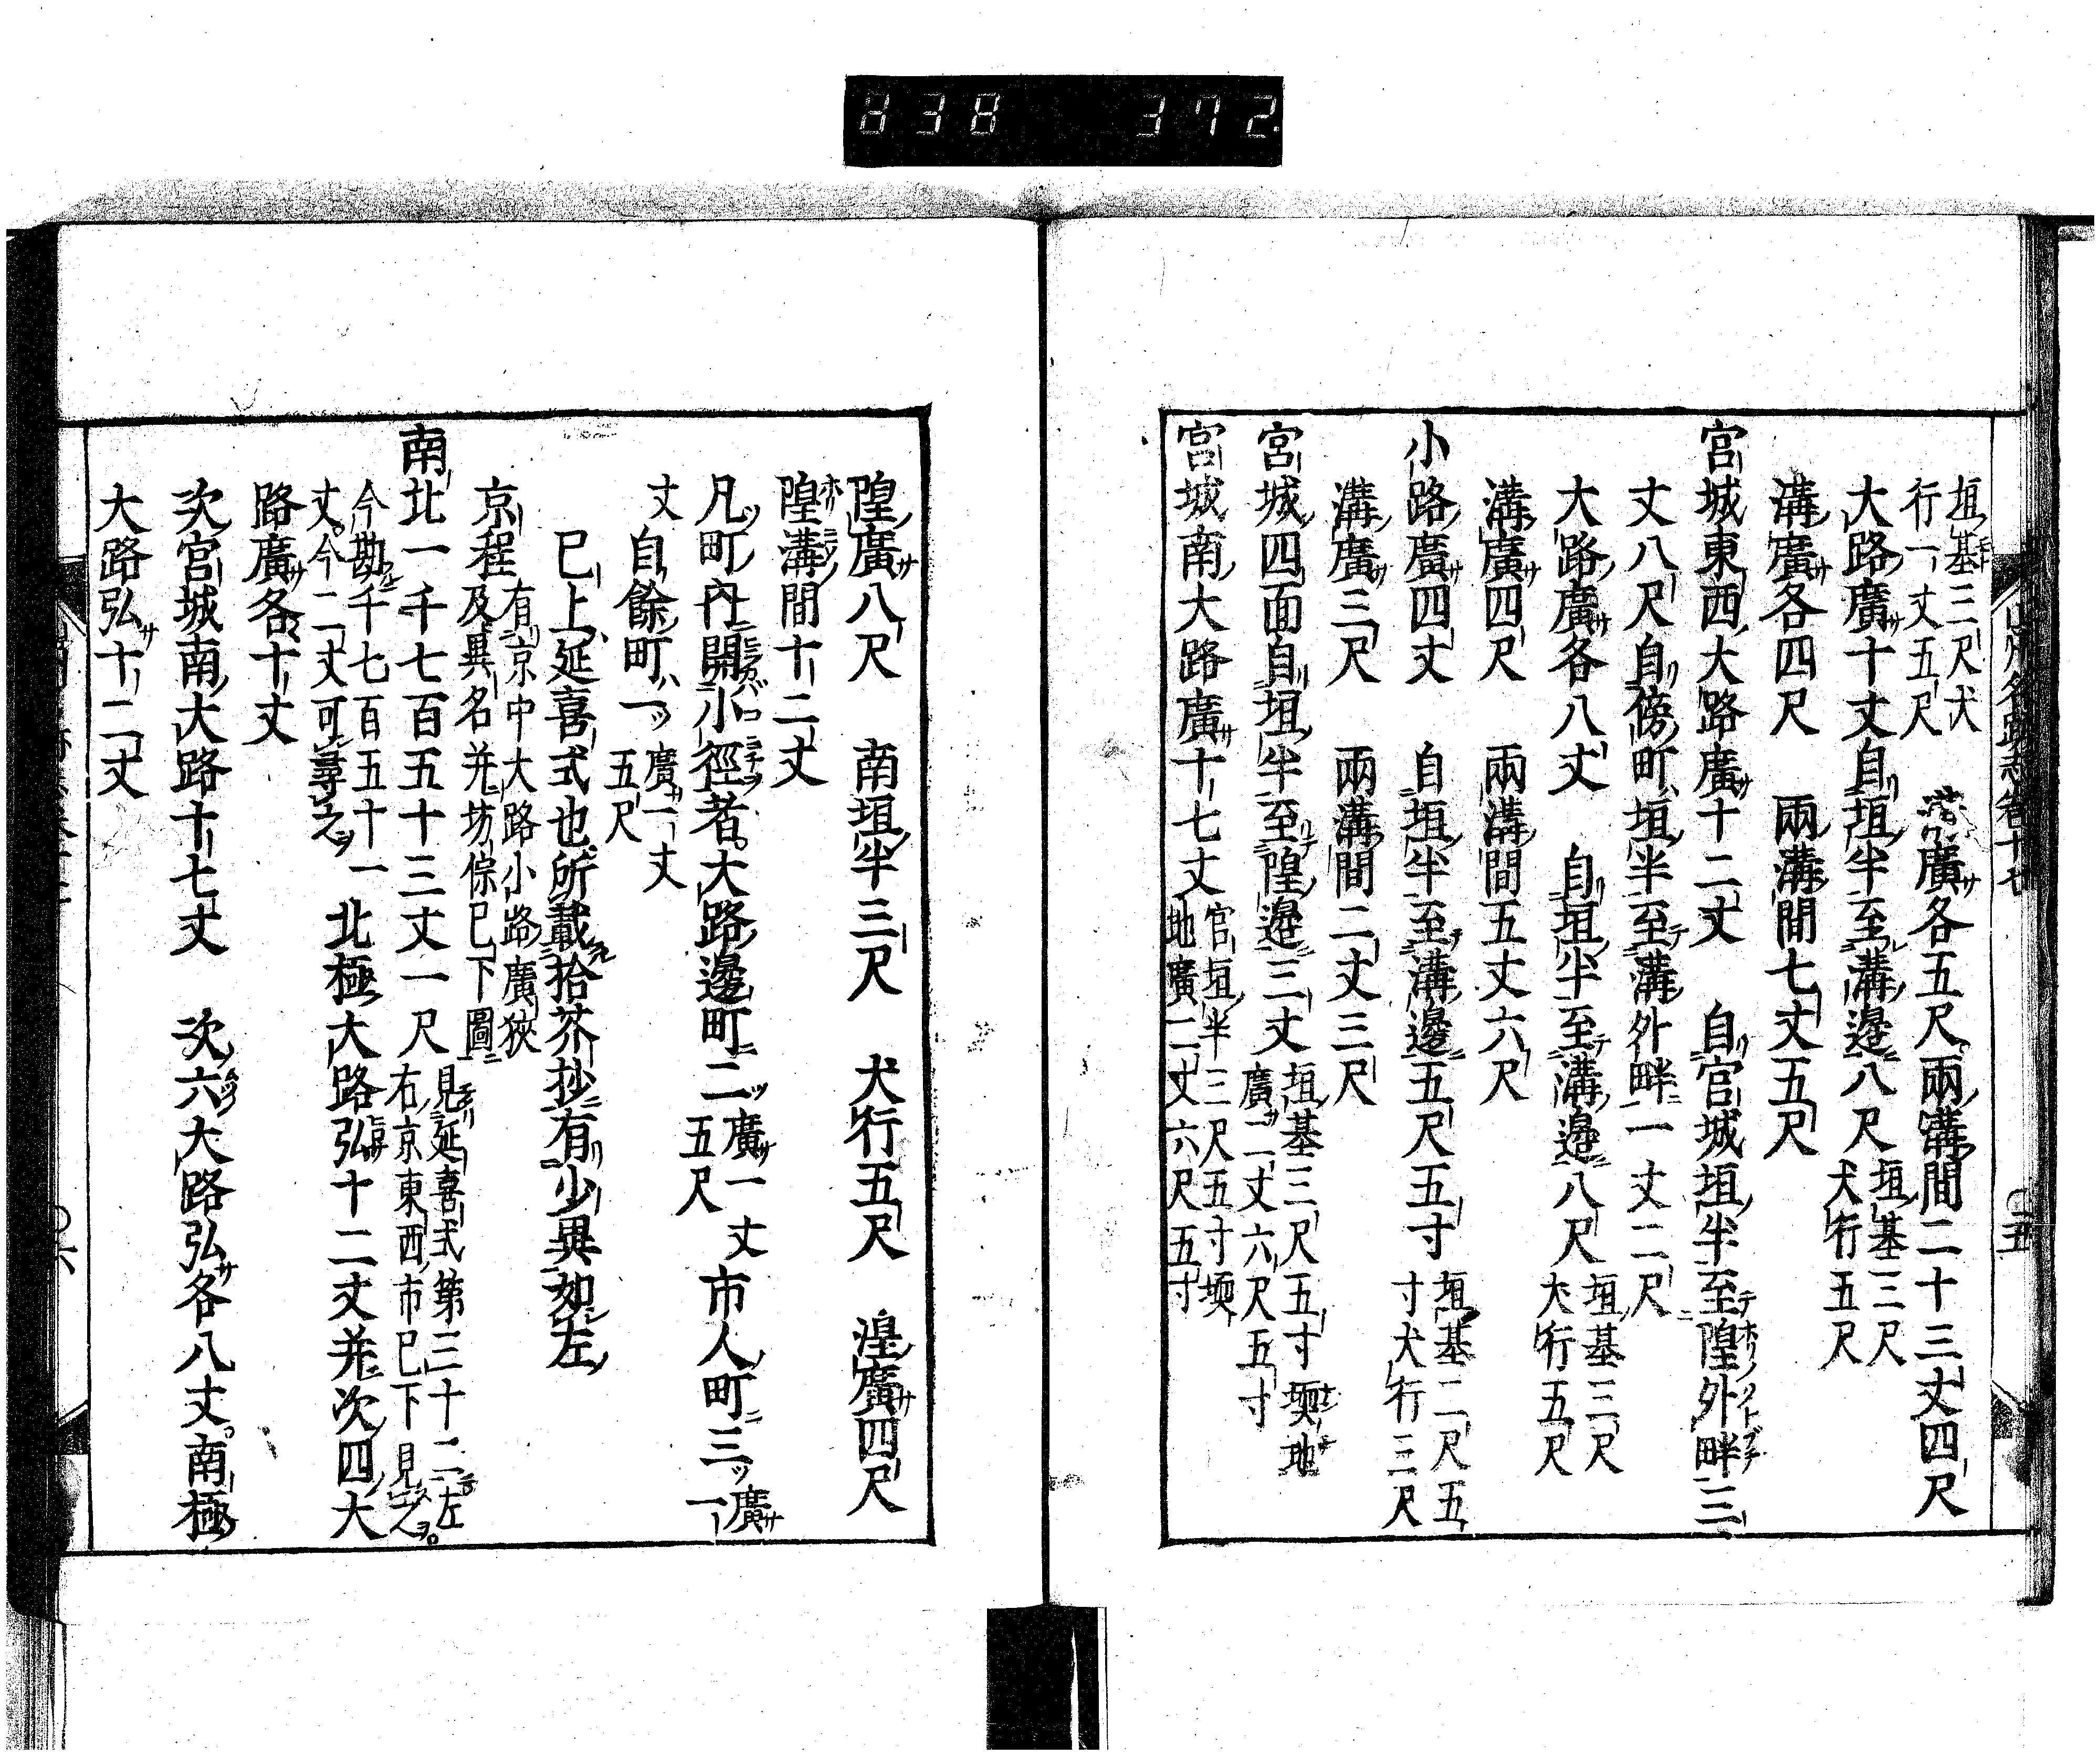 838 372
垣基三尺犬
行一丈五尺
溝廣各五尺兩溝間二十三丈四尺
大路廣十丈自垣半至溝邊八尺
垣基三尺
犬行五尺
溝廣各四尺 兩溝間七丈五尺
宮城東西大路廣十二丈 自宮城垣半至隍外畔三
丈八尺自傍町垣半至溝外畔一丈二尺
大路廣各八丈 自垣半至溝邊八尺
垣基三尺
犬行五尺
溝廣四尺 兩溝間五丈六尺
小路廣四丈 自垣半至溝邊五尺五寸
垣基二尺五
寸犬行三尺
溝廣三尺 兩溝間二丈三尺
宮城四面自垣半至隍邊三丈
垣基三尺五寸壖地
廣二丈六尺五寸
宮城南大路廣十七丈
宮垣半三尺五寸壖
地廣二丈六尺五寸
隍廣八尺 南垣半三尺 犬行五尺 湟廣四尺
隍溝間十二丈
凡町內開小徑者大路邊町二
廣一丈
五尺
市人町三
廣
一
丈 自餘町一
廣一丈
五尺
已上延喜式也所載拾芥抄有少異如左
京程
有京中大路小路廣狹
及異名并坊保已下圖
南北一千七百五十三丈一尺
見延喜式第三十二左
右京東西市已下見之
今勘千七百五十一
丈今二丈可尋之
北極大路弘十二丈并次四大
路廣各十丈
次宮城南大路十七丈 次六大路弘各八丈南極
大路弘十二丈